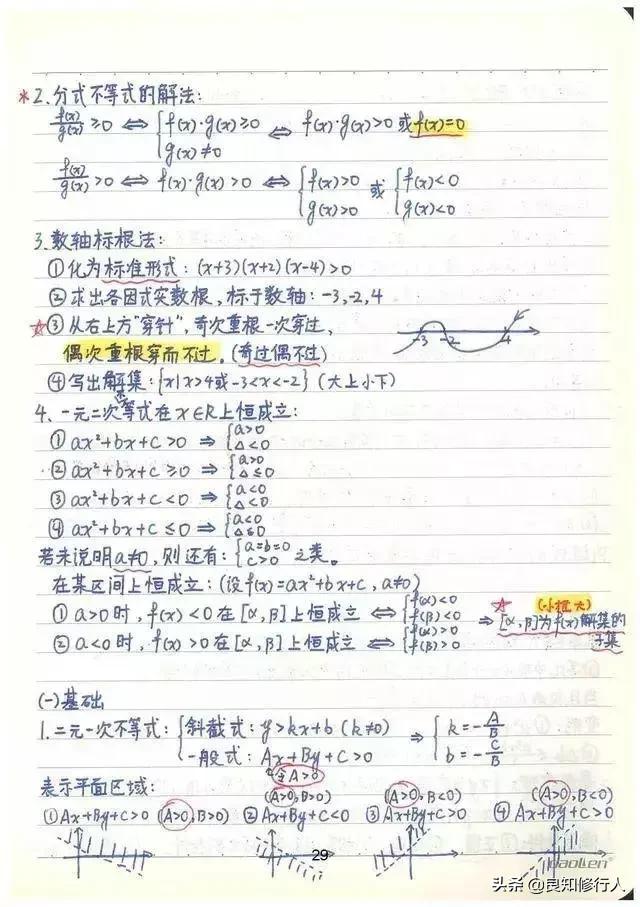 *2.分式不等式的解法:
f(x)/g(x) ≥0 ⇔ {f(x)·g(x)≥0 g(x)≠0 ⇔ f(x)·g(x)>0 或 f(x)=0
f(x)/g(x) >0 ⇔ f(x)·g(x)>0 ⇔ {f(x)>0 g(x)>0 或 {f(x)<0 g(x)<0
3.数轴标根法:
①化为标准形式:(x+3)(x+2)(x-4)>0
②求出各因式实数根,标于数轴:-3,-2,4
☆③从右上方"穿针",奇次重根一次穿过,
偶次重根穿而不过。(奇过偶不过)
-3 -2 4
④写出解集:{x|x>4或-3<x<-2}(大上小下)
4.一元二次等式在x∈R上恒成立:
①ax²+bx+c>0 ⇒ {a>0 △<0
②ax²+bx+c≥0 ⇒ {a>0 △≤0
③ax²+bx+c<0 ⇒ {a<0 △<0
④ax²+bx+c≤0 ⇒ {a<0 △≤0
若未说明a≠0,则还有:{a=b=0 c>0 之类。
在某区间上恒成立:(设f(x)=ax²+bx+c,a≠0)
①a>0时,f(x)<0在[α,β]上恒成立 ⇔ {f(α)<0 f(β)<0
②a<0时,f(x)>0在[α,β]上恒成立 ⇔ {f(α)>0 f(β)>0
☆
⇒ [α,β]为f(x)解集的
子集
(一)基础
1.二元一次不等式:{斜截式:y>kx+b (k≠0) 一般式:Ax+By+C>0 ⇒ {k=-A/B b=-C/B
令A>0
表示平面区域:
①Ax+By+C>0 (A>0,B>0)
②Ax+By+C<0 (A>0,B>0)
③Ax+By+C>0 (A>0,B<0)
④Ax+By+C>0 (A>0,B<0)
29
头条 @良知修行人